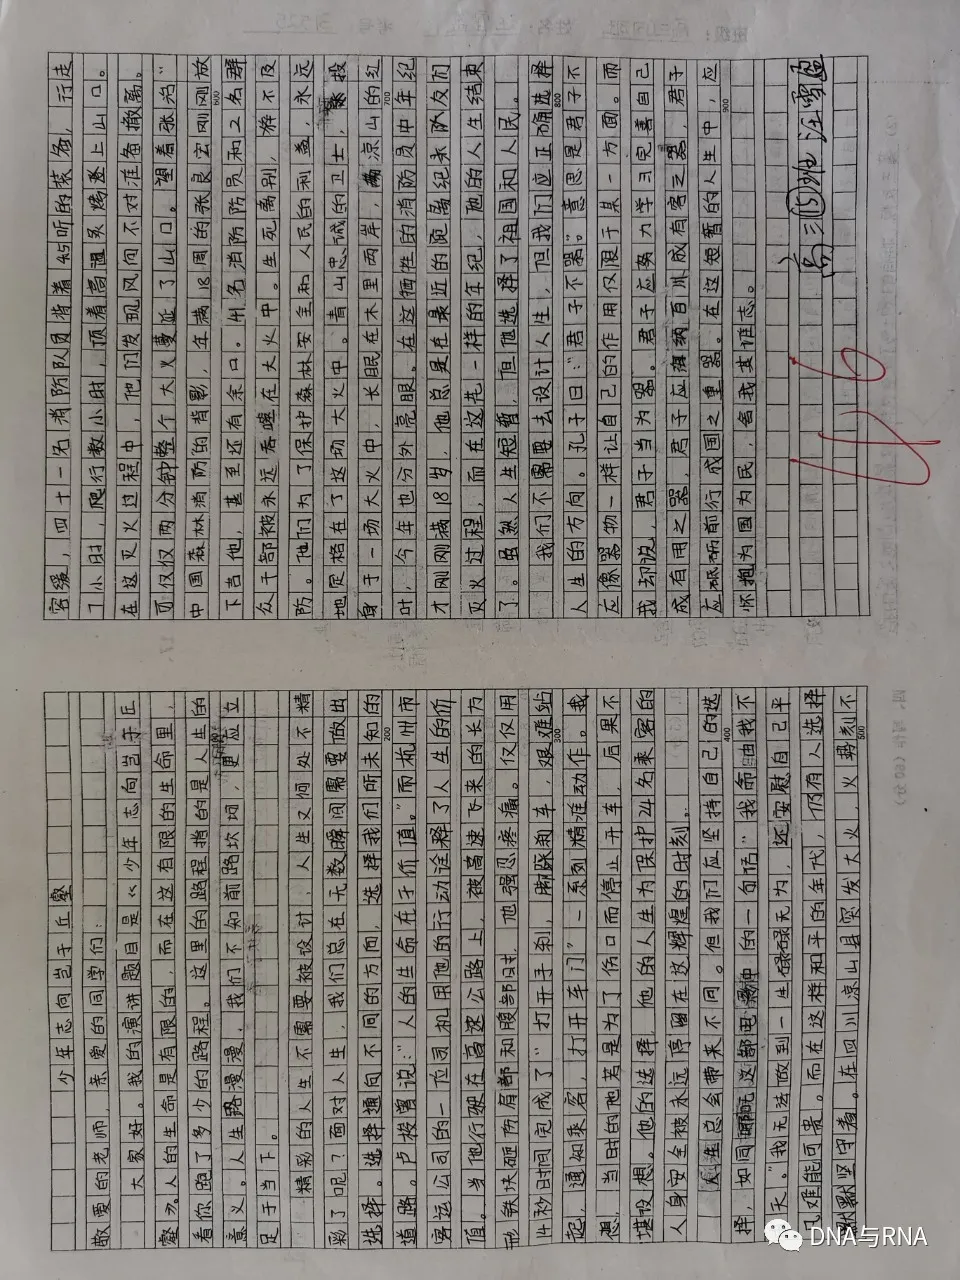 少年志向岂于丘壑
敬爱的老师,亲爱的同学们:
大家好。我的演讲题目是《少年志向岂于丘
壑》。人的生命是有限的,而在这有限的生命里,
看你跑了多少的路程。这里的路程指的是人生的
意义。人生路漫漫,我们不知前路坎坷,更应立
足于当下。
精彩的人生不需要被设计,人生又何处不精
彩了呢?面对人生,我们总在无数瞬间需要做出
选择。选择通向不同的方向,选择我们所未知的
200
道路。卢梭曾说:“人的生命在于价值。”而杭州市
客运公司的一位司机用他的行动诠释了人生的价
值。当他行驶在高速公路上,被高速飞来的长方
形铁块砸伤肩部和腹部时,他强忍疼痛。仅仅用
14秒时间完成了“打开手刹,踩刹车,艰难站
300
起,通知乘客,打开车门”一系列精准动作。我
想,当时的他若是为了伤口而停止开车,后果不
堪设想。他的选择,他的人生为保护24名乘客的
人身安全被永远停留在这辉煌的时刻。
人生总会带来不同。但我们应坚持自己的选
400
择,如同哪吒这部电影中的一句话“我命由我不
由天。”我无法做到一生碌碌无为,还安慰自己平
凡难能可贵。而在这样和平的年代,仍有人选择
默默坚守着。在四川凉山县突发大火,火势刻不
500
容缓,四十一名消防队员背着45斤的装备,行走
7小时,爬行数小时,顶着高温炙烤登上山口。
在这灭火过程中,他们发现风向不对准备撤离。
可仅仅两分钟整个大火蔓延了山口。望着张浩
中国森林消防的背影,年满18周的张良宏刚刚放
600
下吉他,甚至还有余口。41名消防员和2名群
众干部被永远吞噬在大火中。生死离别,猝不及
防。他们为了保护森林安全和人民的利益,永远
地定格在了这场大火中。青山忠诚的卫士,投
身于一场大火中,长眠在木里两岸,凉山的红
700
叶,今年也分外亮眼。在这牺牲的消防员中年纪
才刚刚满18岁,他总是在最近的距离纪录队友们
灭火过程,而在这花一样的年纪,他的人生结束
了。虽然人生短暂,但他选择了祖国和人民。
我们不需要去设计人生,但我们应正确选择
800
人生的方向。孔子曰:“君子不器。”意思是君子不
应像器物一样让自己的作用仅限于某一方面。而
我却说,君子当为器。君子应努力学习完善自己
成有用之器,君子应海纳百川成有容之器,君子
应砥砺前行成国之重器。在这短暂的人生中,应
900
怀抱为国为民,舍我其谁志。
高三15班 汪雪盈
56
DNA与RNA